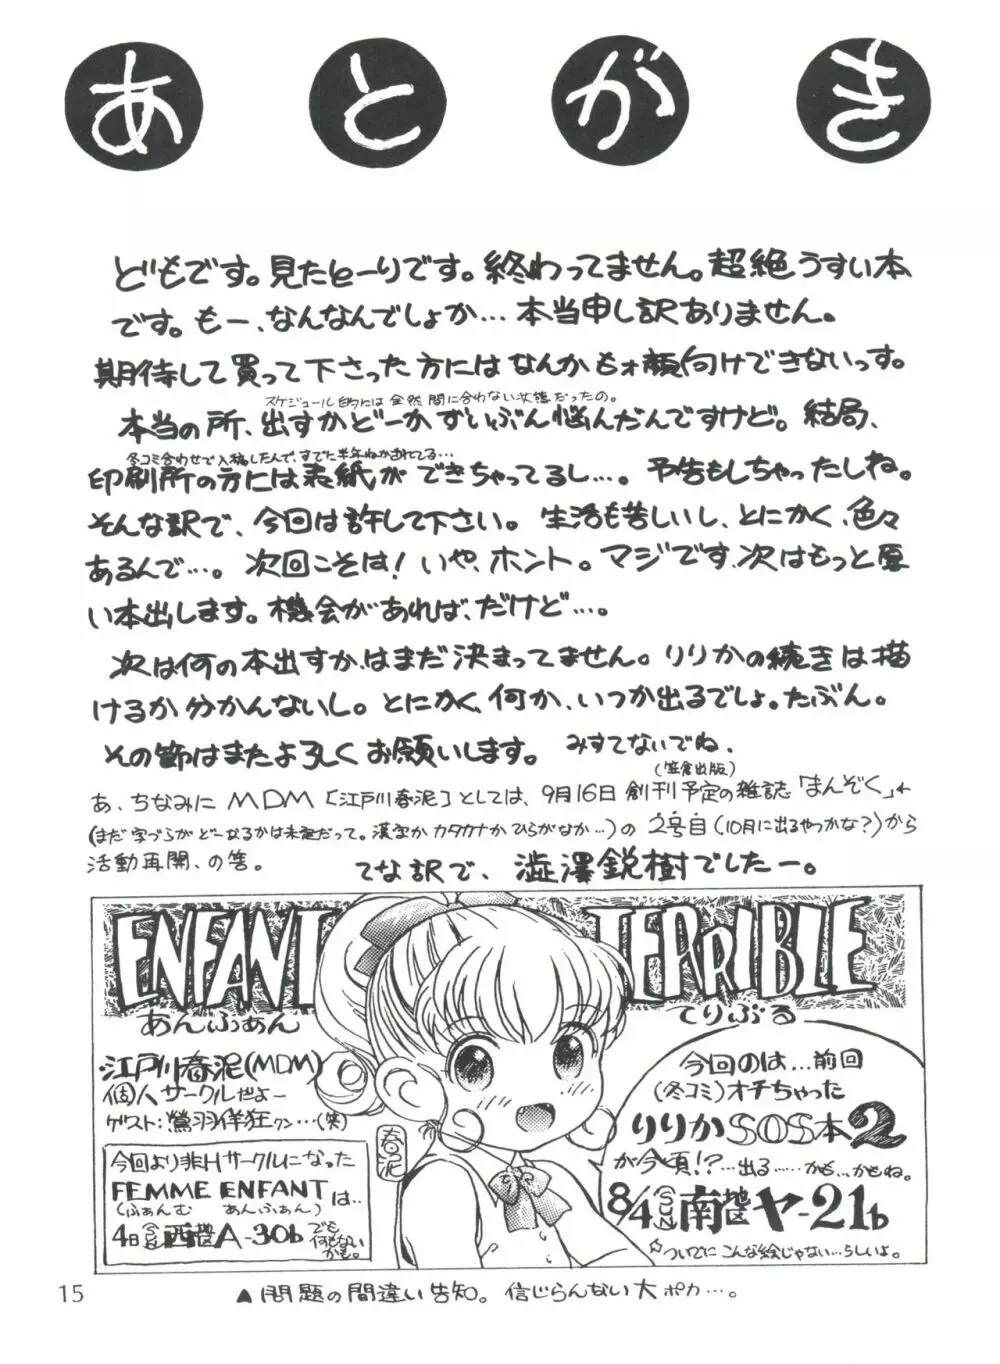 あとがき
どもです。見たとーりです。終わってません。超絶うすい本
です。もー、なんなんでしょか…本当申し訳ありません。
期待して買って下さった方にはなんかもォ顔向けできないっす。
スケジュール的には全然間に合わない状態だったの。
本当の所、出すかどーかずいぶん悩んだんですけど。結局、
冬コミ合わせで入稿したんで、すでに半年ねかされてる…
印刷所の方には表紙ができちゃってるし…。予告もしちゃったしね。
そんな訳で、今回は許して下さい。生活も苦しいし、とにかく、色々
あるんで…。次回こそは！いや、ホント。マジです、次はもっと厚
い本出します。機会があれば、だけど…。
次は何の本出すか、はまだ決まってません。りりかの続きは描
けるか分かんないし。とにかく、何か、いつか出るでしょ。たぶん。
その節はまたよろしくお願いします。みすてないでね、
(笠倉出版)
あ、ちなみにMDM[江戸川春泥]としては、9月16日創刊予定の雑誌「まんぞく」
(まだ字づらがどーなるかは未定だって。漢字かカタカナかひらがなか…)の2号目(10月に出るやつかな?)から
活動再開、の筈。
てな訳で、澁澤鋭樹でしたー。
ENFANT TERRIBLE
あんふぁん てりぶる
江戸川春泥(MDM)
個人サークルだよー
ゲスト:鶯羽佯狂クン…(笑)
春泥
今回より非Hサークルになった
FEMME ENFANTは…
(ふぁんむ あんふぁん)
4日 西地区A-30b でも何もないかも。
今回のは…前回
(冬コミ)オチちゃった
りりかSOS本2
が今頃!?…出る……かも…かもね。
8/4 SUN 南地区ヤ-21b
ついでにこんな絵じゃない…らしいよ。
15
▲問題の間違い告知。信じらんない大ポカ…。